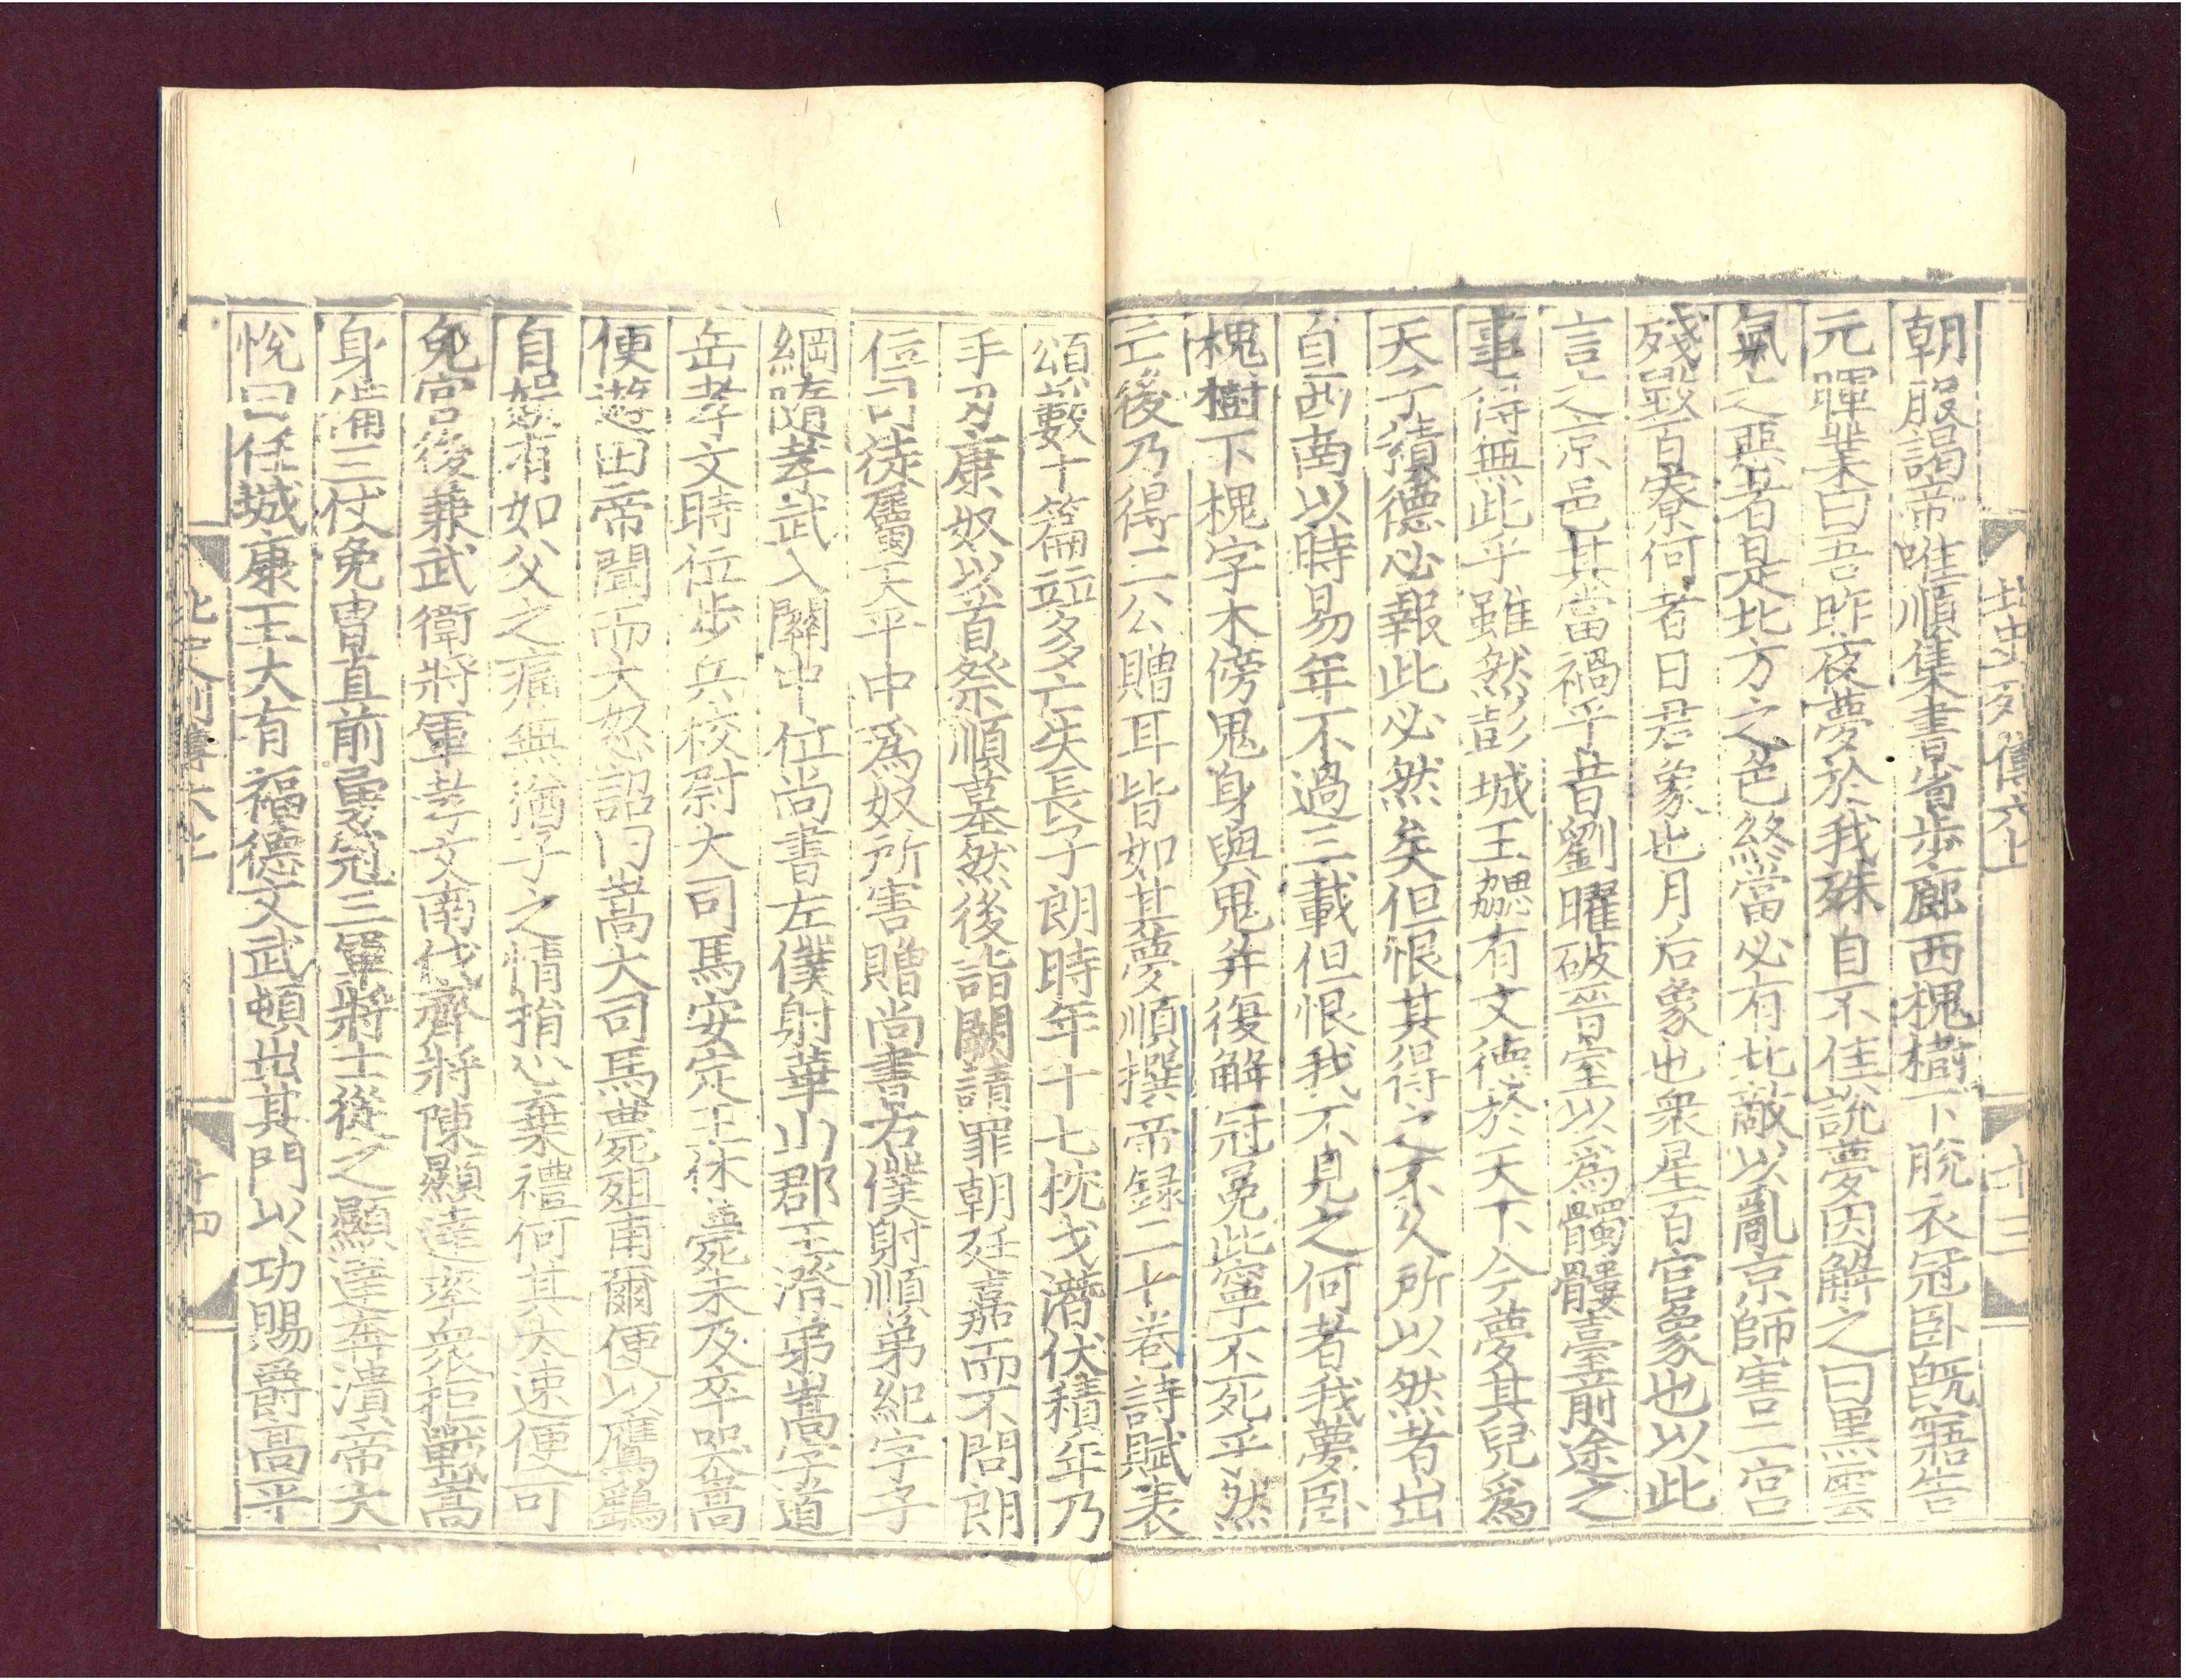 北史列傳六上
十三
朝服謁帝唯順集書省步廊西槐樹下脫衣冠卧旣寤告
元暉業曰吾昨夜夢於我殊自不佳說夢因解之曰黑雲
氣之惡者是北方之色終當必有北敵以亂京師害二宮
殘毀百寮何者日君象也月后象也衆星百官象也以此
言之京邑其當禍乎昔劉曜破晉室以爲髑髏臺前途之
事得無此乎雖然彭城王勰有文德於天下今夢其兒爲
天子積德必報此必然矣但恨其得之不久所以然者出
自西南以時易年不過三載但恨我不見之何者我夢卧
槐樹下槐字木傍鬼身與鬼并復解冠冕此寧不死乎然
亡後乃得三公贈耳皆如其夢順撰帝録二十卷詩賦表
頌數十篇並多亡失長子朗時年十七枕戈潛伏積年乃
手刃康奴以首祭順墓然後詣闕請罪朝廷嘉而不問朗
位司徒屬天平中爲奴所害贈尚書右僕射順弟紀字子
綱隨孝武入關中位尚書左僕射華山郡王澄弟嵩字道
岳孝文時位步兵校尉大司馬安定王休薨未及卒哭嵩
便遊田帝聞而大怒詔曰嵩大司馬薨殂甫爾便以鷹鷂
自娛有如父之痛無猶子之情捐心棄禮何其太速便可
免官後兼武衛將軍孝文南伐齊將陳顯達率衆拒戰嵩
身備三仗免胄直前勇冠三軍將士從之顯達奔潰帝大
悅曰任城康王大有福德文武頓出其門以功賜爵高平
北史列傳六上
十四